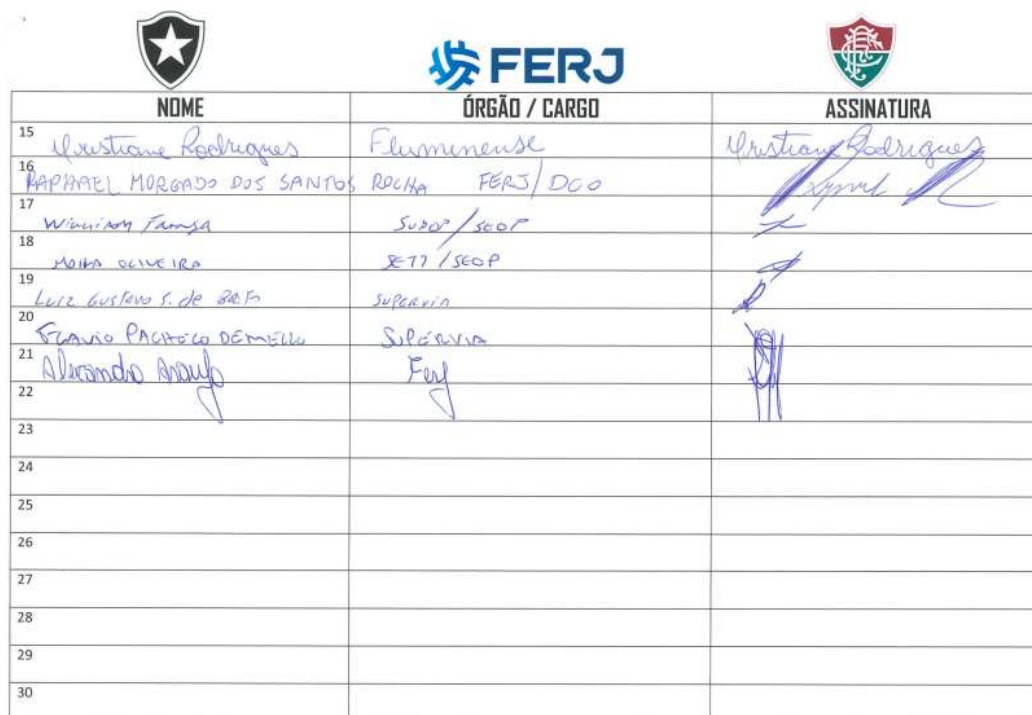 FERJ
NOME ÓRGÃO / CARGO ASSINATURA
15 Cristiane Rodrigues Fluminense Cristiane Rodrigues
16 RAPHAEL MORGADO DOS SANTOS ROCHA FERJ/DCO
17 SUBOP/SEOP
18 OLIVEIRA /SEOP
19 LUIZ GUSTAVO S. de SUPERVIA
20 FLAVIO PACHECO DE MELLO SUPERVIA
21 Alexandre Araujo Ferj
22
23
24
25
26
27
28
29
30